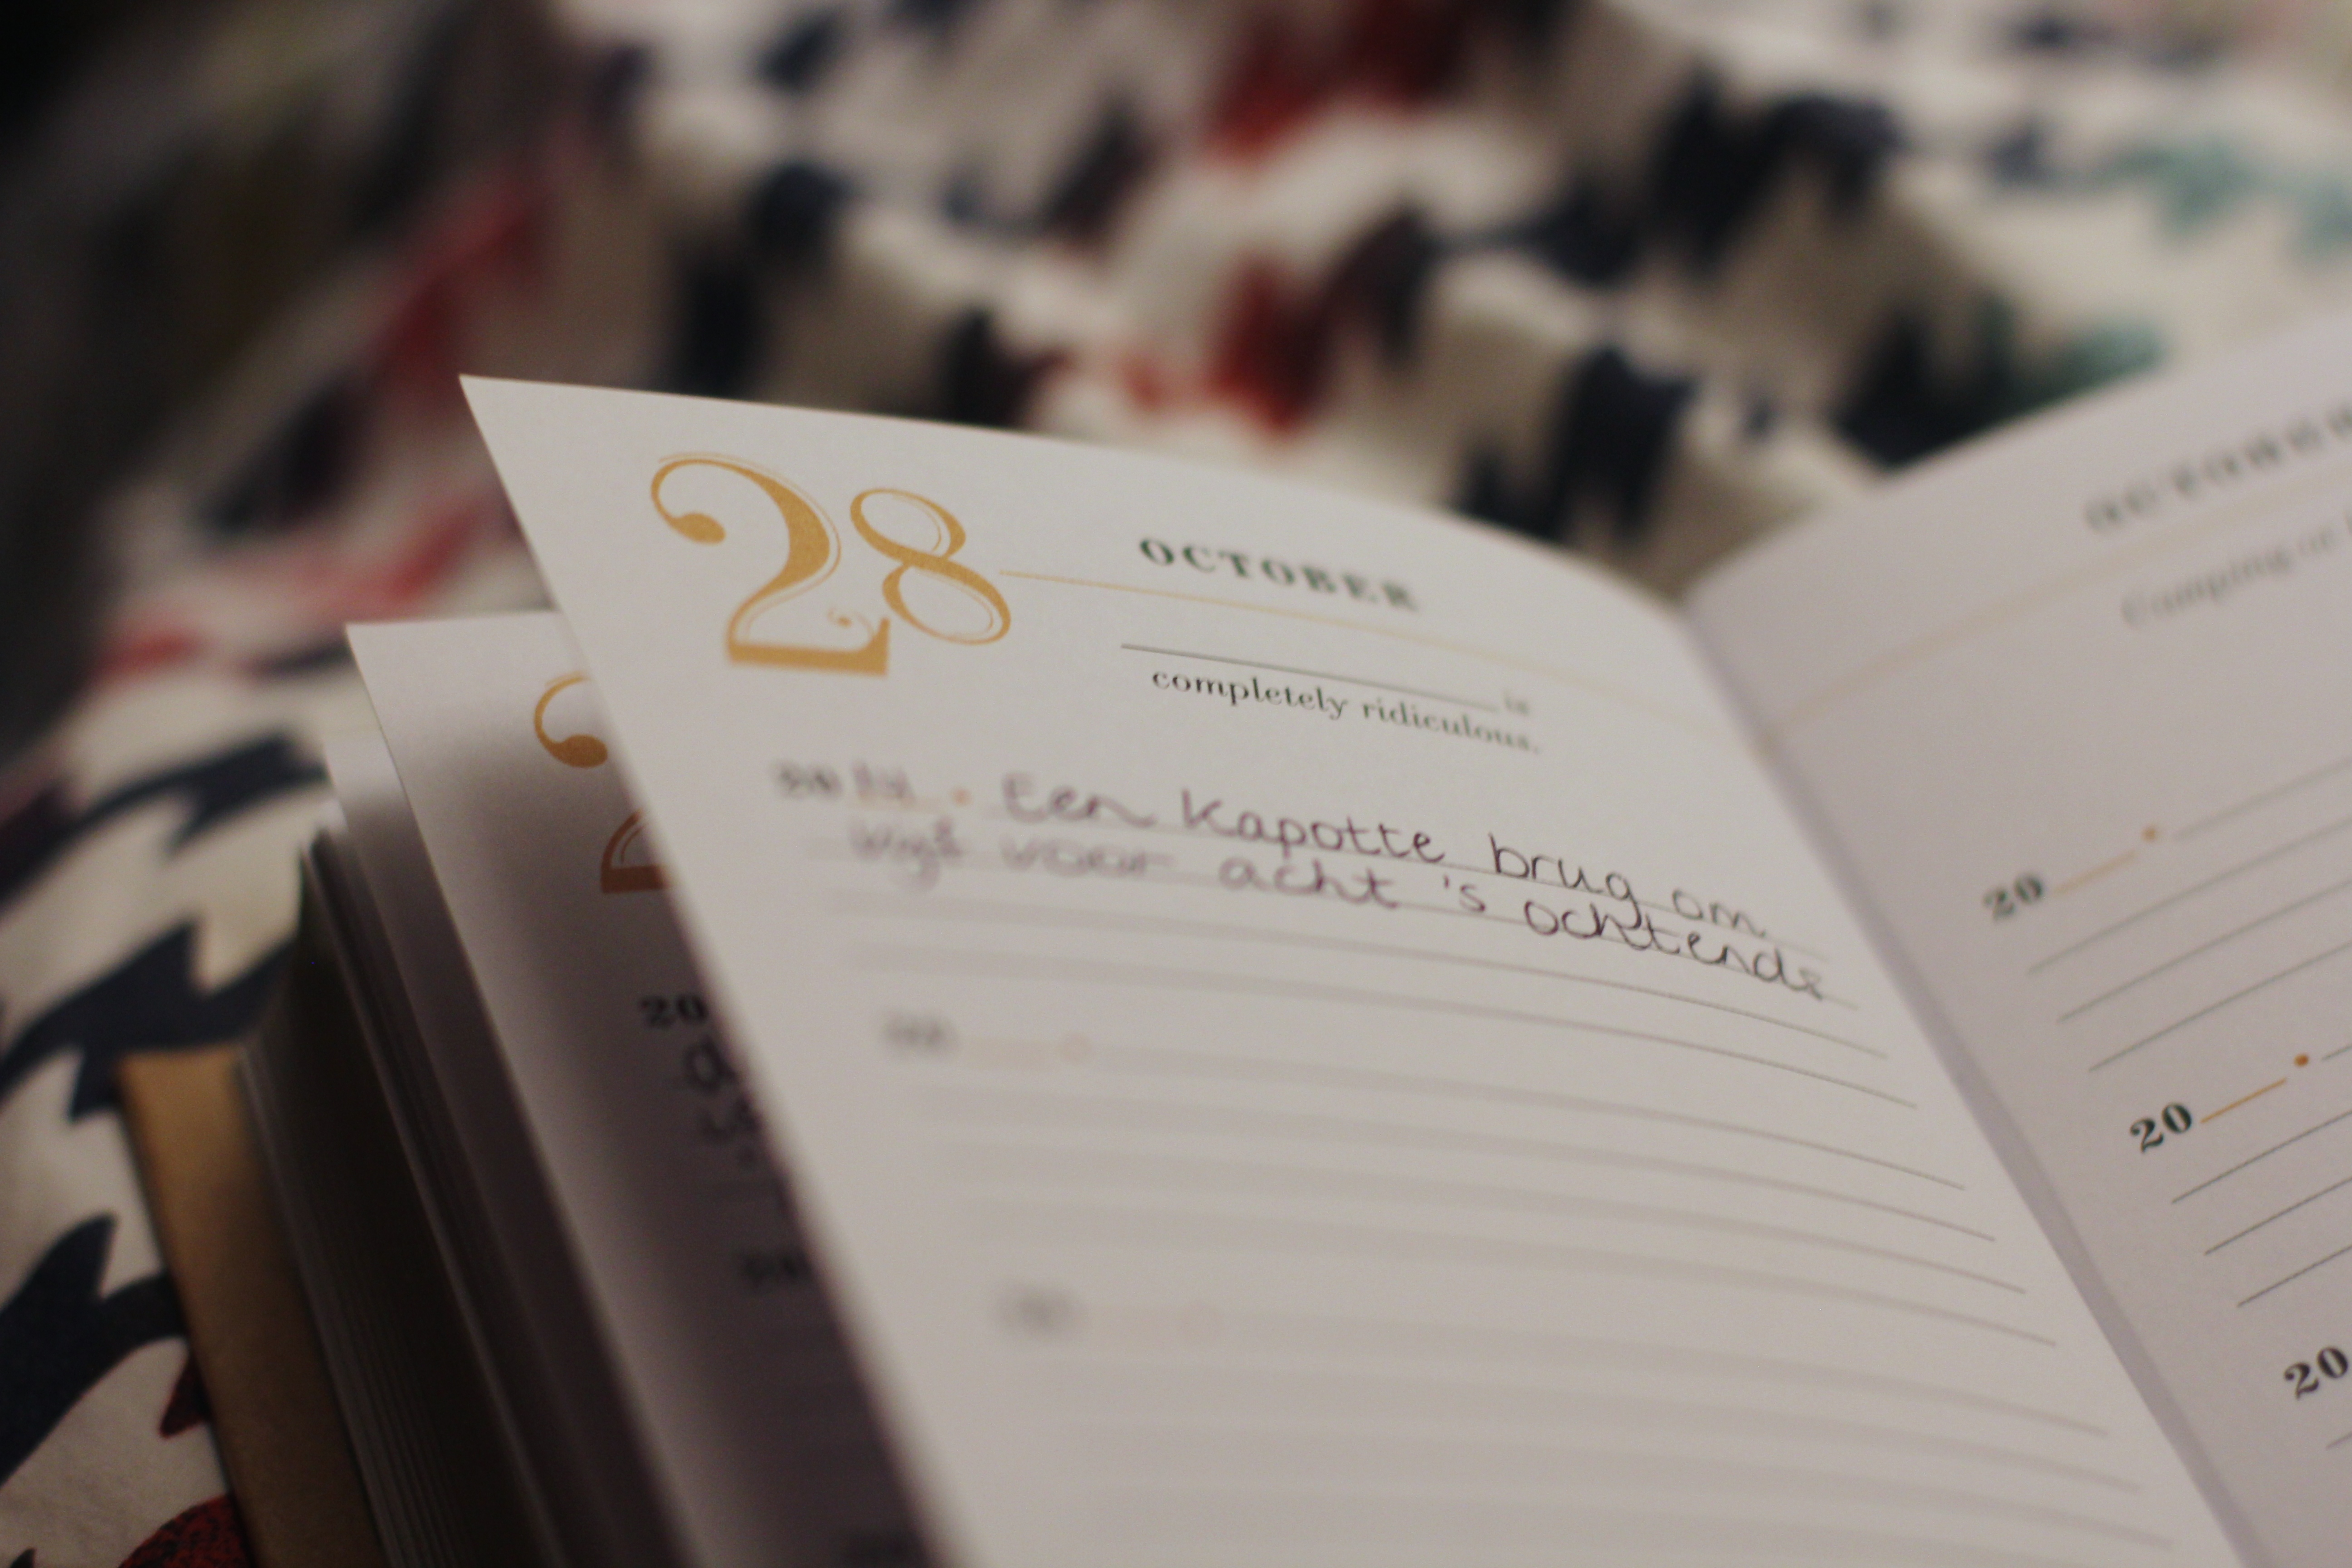 28
OCTOBER
is
completely ridiculous.
20 14 . Een kapotte brug om
vijf voor acht 's ochtends
20
20
20
20
OCTOBER
Camping or
20
20
20